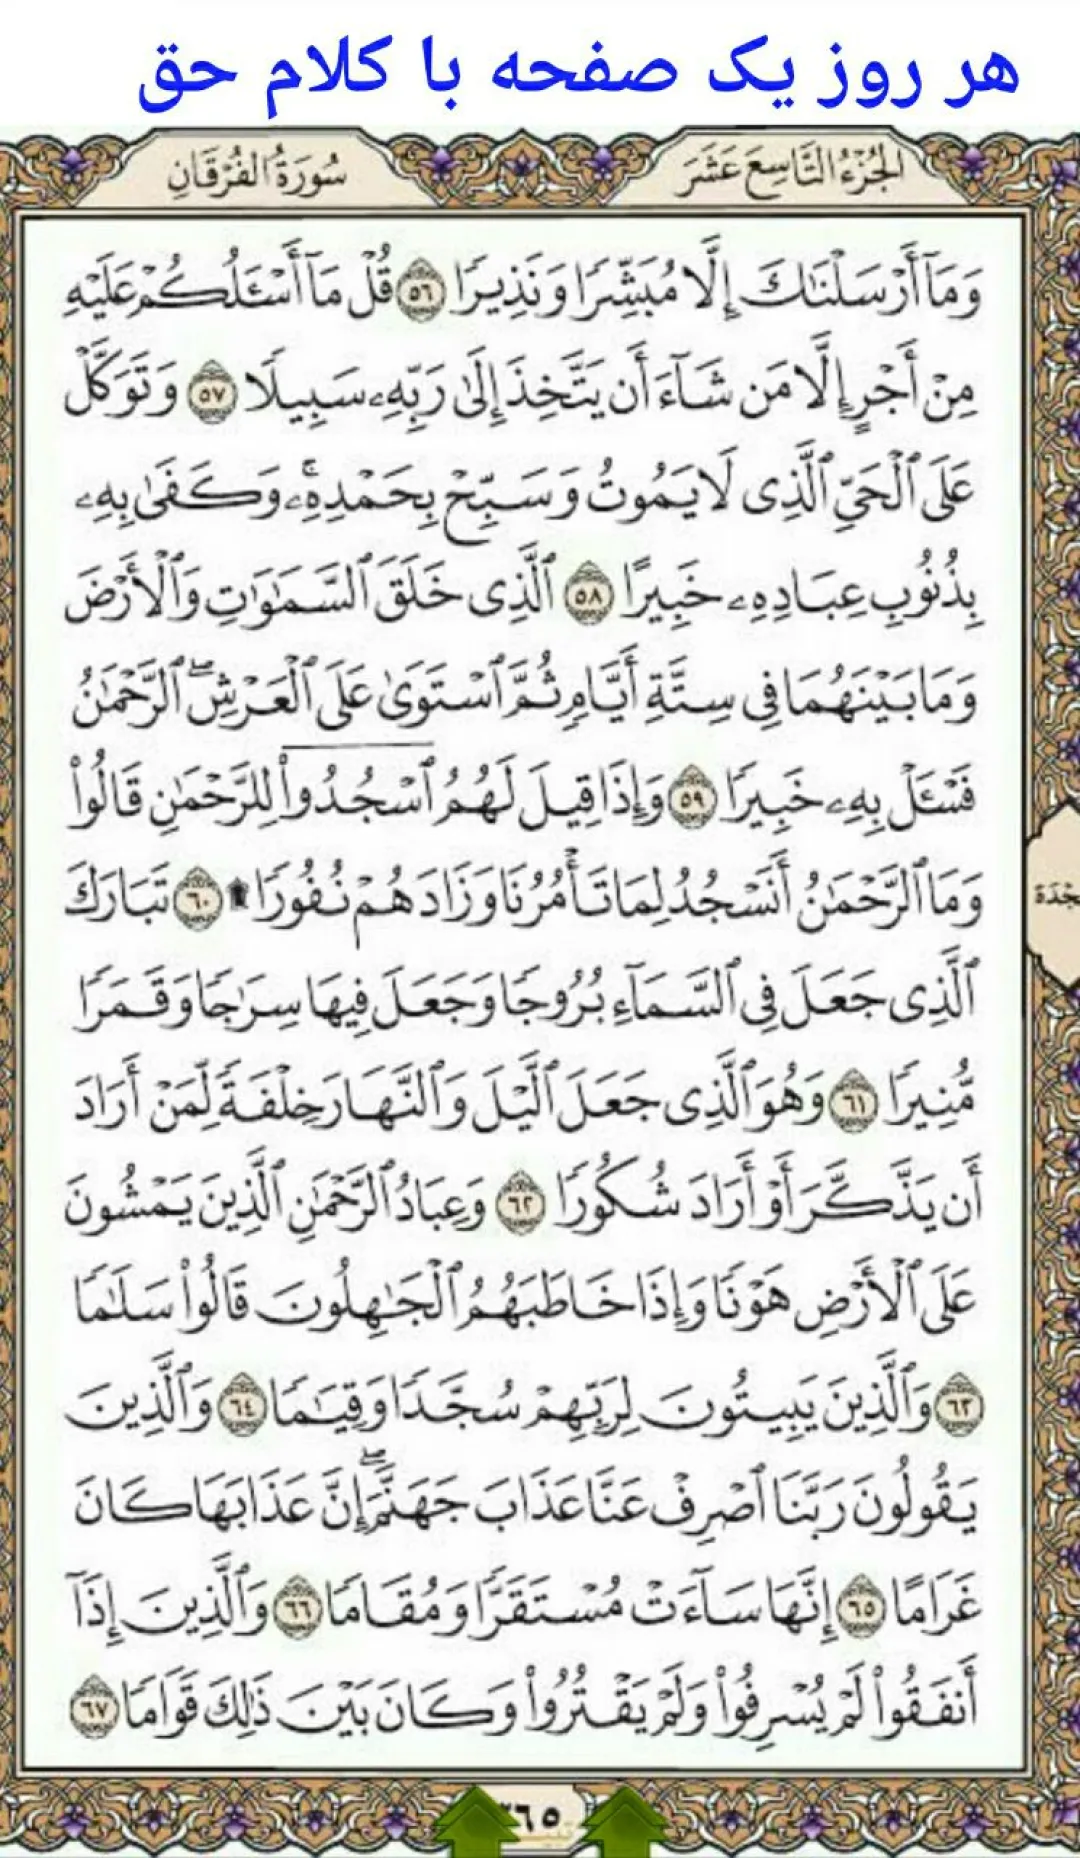 هر روز یک صفحه با کلام حق
الجُزْءُ التَّاسِعَ عَشَرَ
سُورَةُ الْفُرْقَانِ
وَمَآ أَرْسَلْنَٰكَ إِلَّا مُبَشِّرًا وَنَذِيرًا ٥٦ قُلْ مَآ أَسْـَٔلُكُمْ عَلَيْهِ
مِنْ أَجْرٍ إِلَّا مَن شَآءَ أَن يَتَّخِذَ إِلَىٰ رَبِّهِۦ سَبِيلًا ٥٧ وَتَوَكَّلْ
عَلَى ٱلْحَىِّ ٱلَّذِى لَا يَمُوتُ وَسَبِّحْ بِحَمْدِهِۦۚ وَكَفَىٰ بِهِۦ
بِذُنُوبِ عِبَادِهِۦ خَبِيرًا ٥٨ ٱلَّذِى خَلَقَ ٱلسَّمَٰوَٰتِ وَٱلْأَرْضَ
وَمَا بَيْنَهُمَا فِى سِتَّةِ أَيَّامٍ ثُمَّ ٱسْتَوَىٰ عَلَى ٱلْعَرْشِۖ ٱلرَّحْمَٰنُ
فَسْـَٔلْ بِهِۦ خَبِيرًا ٥٩ وَإِذَا قِيلَ لَهُمُ ٱسْجُدُوا۟ لِلرَّحْمَٰنِ قَالُوا۟
وَمَا ٱلرَّحْمَٰنُ أَنَسْجُدُ لِمَا تَأْمُرُنَا وَزَادَهُمْ نُفُورًا ۩ ٦٠ تَبَارَكَ
ٱلَّذِى جَعَلَ فِى ٱلسَّمَآءِ بُرُوجًا وَجَعَلَ فِيهَا سِرَٰجًا وَقَمَرًا
مُّنِيرًا ٦١ وَهُوَ ٱلَّذِى جَعَلَ ٱلَّيْلَ وَٱلنَّهَارَ خِلْفَةً لِّمَنْ أَرَادَ
أَن يَذَّكَّرَ أَوْ أَرَادَ شُكُورًا ٦٢ وَعِبَادُ ٱلرَّحْمَٰنِ ٱلَّذِينَ يَمْشُونَ
عَلَى ٱلْأَرْضِ هَوْنًا وَإِذَا خَاطَبَهُمُ ٱلْجَٰهِلُونَ قَالُوا۟ سَلَٰمًا
٦٣ وَٱلَّذِينَ يَبِيتُونَ لِرَبِّهِمْ سُجَّدًا وَقِيَٰمًا ٦٤ وَٱلَّذِينَ
يَقُولُونَ رَبَّنَا ٱصْرِفْ عَنَّا عَذَابَ جَهَنَّمَۖ إِنَّ عَذَابَهَا كَانَ
غَرَامًا ٦٥ إِنَّهَا سَآءَتْ مُسْتَقَرًّا وَمُقَامًا ٦٦ وَٱلَّذِينَ إِذَآ
أَنفَقُوا۟ لَمْ يُسْرِفُوا۟ وَلَمْ يَقْتُرُوا۟ وَكَانَ بَيْنَ ذَٰلِكَ قَوَامًا ٦٧
٣٦٥